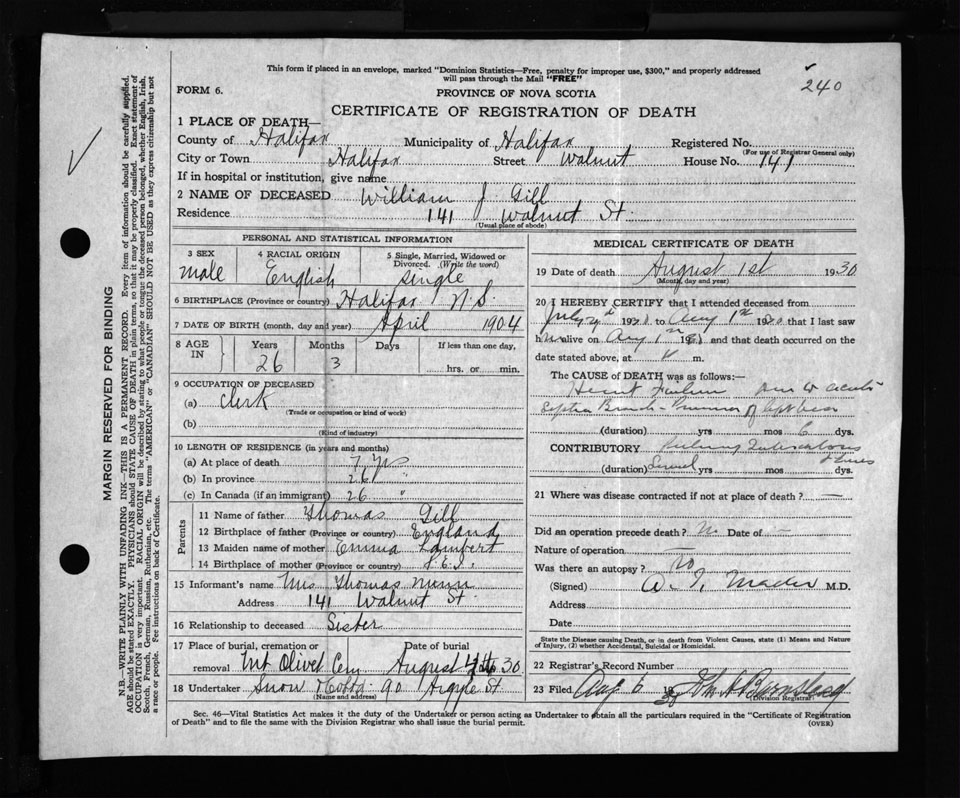 This form if placed in an envelope, marked "Dominion Statistics—Free, penalty for improper use, $300," and properly addressed
will pass through the Mail "FREE"
240
FORM 6.
PROVINCE OF NOVA SCOTIA
CERTIFICATE OF REGISTRATION OF DEATH
1 PLACE OF DEATH—
County of Halifax Municipality of Halifax Registered No.
(For use of Registrar General only)
City or Town Halifax Street Walnut House No. 141
If in hospital or institution, give name
2 NAME OF DECEASED William J. Gill
Residence 141 Walnut St.
(Usual place of abode)
PERSONAL AND STATISTICAL INFORMATION
3 SEX 4 RACIAL ORIGIN 5 Single, Married, Widowed or
Divorced. (Write the word)
male English single
6 BIRTHPLACE (Province or country) Halifax N.S.
7 DATE OF BIRTH (month, day and year) April 1904
8 AGE IN Years Months Days If less than one day,
26 3 hrs. or min.
9 OCCUPATION OF DECEASED
(a) Clerk
(Trade or occupation or kind of work)
(b)
(Kind of industry)
10 LENGTH OF RESIDENCE (in years and months)
(a) At place of death 7 yrs
(b) In province 26 "
(c) In Canada (if an immigrant) 26 "
Parents
11 Name of father Thomas Gill
12 Birthplace of father (Province or country) England
13 Maiden name of mother Emma Lambert
14 Birthplace of mother (Province or country) P.E.I.
15 Informant's name Mrs Thomas Nunn
Address 141 Walnut St
16 Relationship to deceased Sister
17 Place of burial, cremation or Date of burial
removal Mt Olivet Cem August 4th 30
18 Undertaker Snow 90 Argyle St
(Name and address)
MEDICAL CERTIFICATE OF DEATH
19 Date of death August 1st 1930
(Month, day and year)
20 I HEREBY CERTIFY that I attended deceased from
July 1930 to Aug 1st 1930 that I last saw
h alive on Aug 1st 19 and that death occurred on the
date stated above, at m.
The CAUSE of DEATH was as follows:—
Heart Failure due to acute
Septic of left
(duration) yrs mos 6 dys.
CONTRIBUTORY Pulmonary Tuberculosis
(duration) Several yrs mos dys.
21 Where was disease contracted if not at place of death? —
Did an operation precede death? No Date of —
Nature of operation —
Was there an autopsy? No
(Signed) Mader M.D.
Address
Date
State the Disease causing Death, or in death from Violent Causes, state (1) Means and Nature
of Injury, (2) whether Accidental, Suicidal or Homicidal.
22 Registrar's Record Number
23 Filed Aug 6 19
(Division Registrar)
Sec. 46—Vital Statistics Act makes it the duty of the Undertaker or person acting as Undertaker to obtain all the particulars required in the "Certificate of Registration
of Death" and to file the same with the Division Registrar who shall issue the burial permit. (OVER)
MARGIN RESERVED FOR BINDING
N.B.—WRITE PLAINLY WITH UNFADING INK—THIS IS A PERMANENT RECORD. Every item of information should be carefully supplied.
AGE should be stated EXACTLY. PHYSICIANS should STATE CAUSE OF DEATH in plain terms, so that it may be properly classified. Exact statement of
OCCUPATION is very important. RACIAL ORIGIN will be described by stating to what people or tongue the deceased person belonged, whether English, Irish,
Scotch, French, German, Russian, Ruthenian, etc. The terms "AMERICAN" or "CANADIAN" SHOULD NOT BE USED as they express citizenship but not
a race or people. See instructions on back of Certificate.